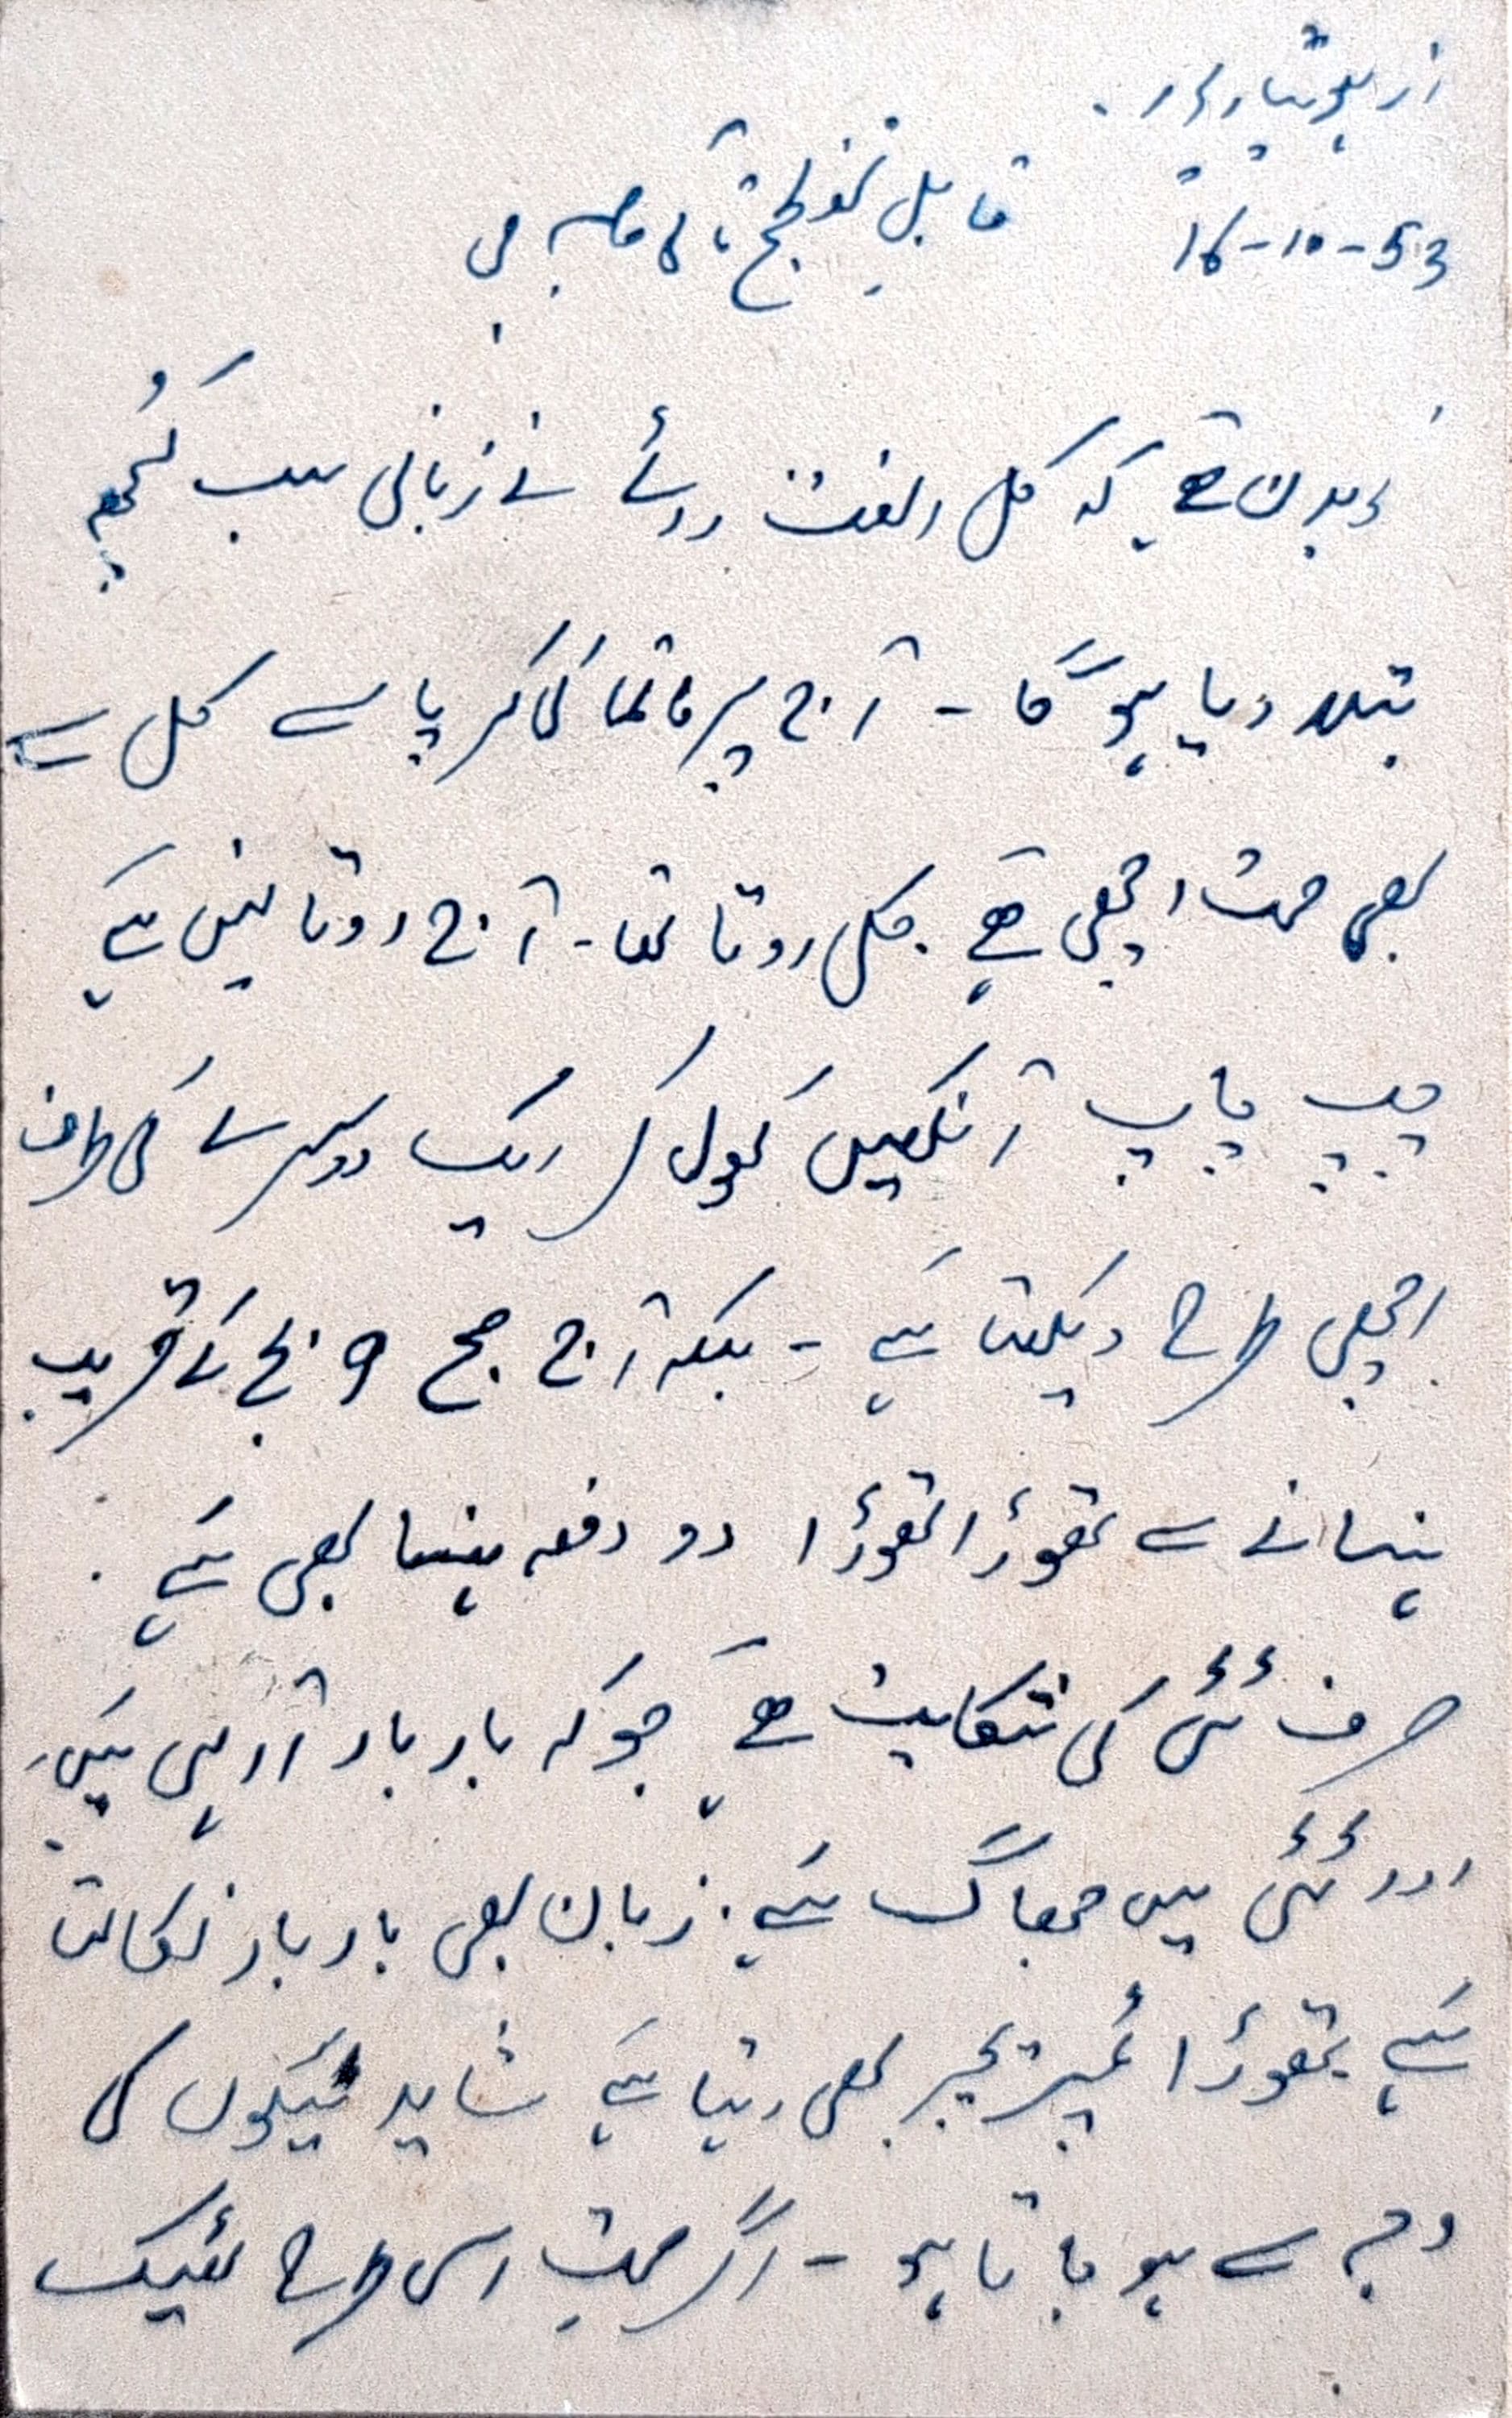 از ہوشیارپور.
16-10-53
قابل تعظیم تائی صاحبہ جی
کہ کل نے زبانی سب کُچھ
بتلا دیا ہوگا - آج پرماتما کی کرپا سے کل سے
بھی صحت اچھی ہے. کل روتا تھا - آج روتا نہیں ہے
چپ چاپ آنکھیں کھول کر ایک دوسرے کی طرف
اچھی طرح دیکھتا ہے - بلکہ آج صبح 9 بجے کے قریب
ہنسانے سے تھوڑا تھوڑا دو دفعہ ہنسا بھی ہے.
صرف ٹٹی کی شکایت ہے جو کہ بار بار آ رہی ہیں
اور ٹٹی میں جھاگ ہے. زبان بھی بار بار نکالتا
ہے تھوڑا ٹمپریچر بھی رہتا ہے شاید ٹیکوں کی
وجہ سے ہو جاتا ہو - اگر صحت اسی طرح ٹھیک